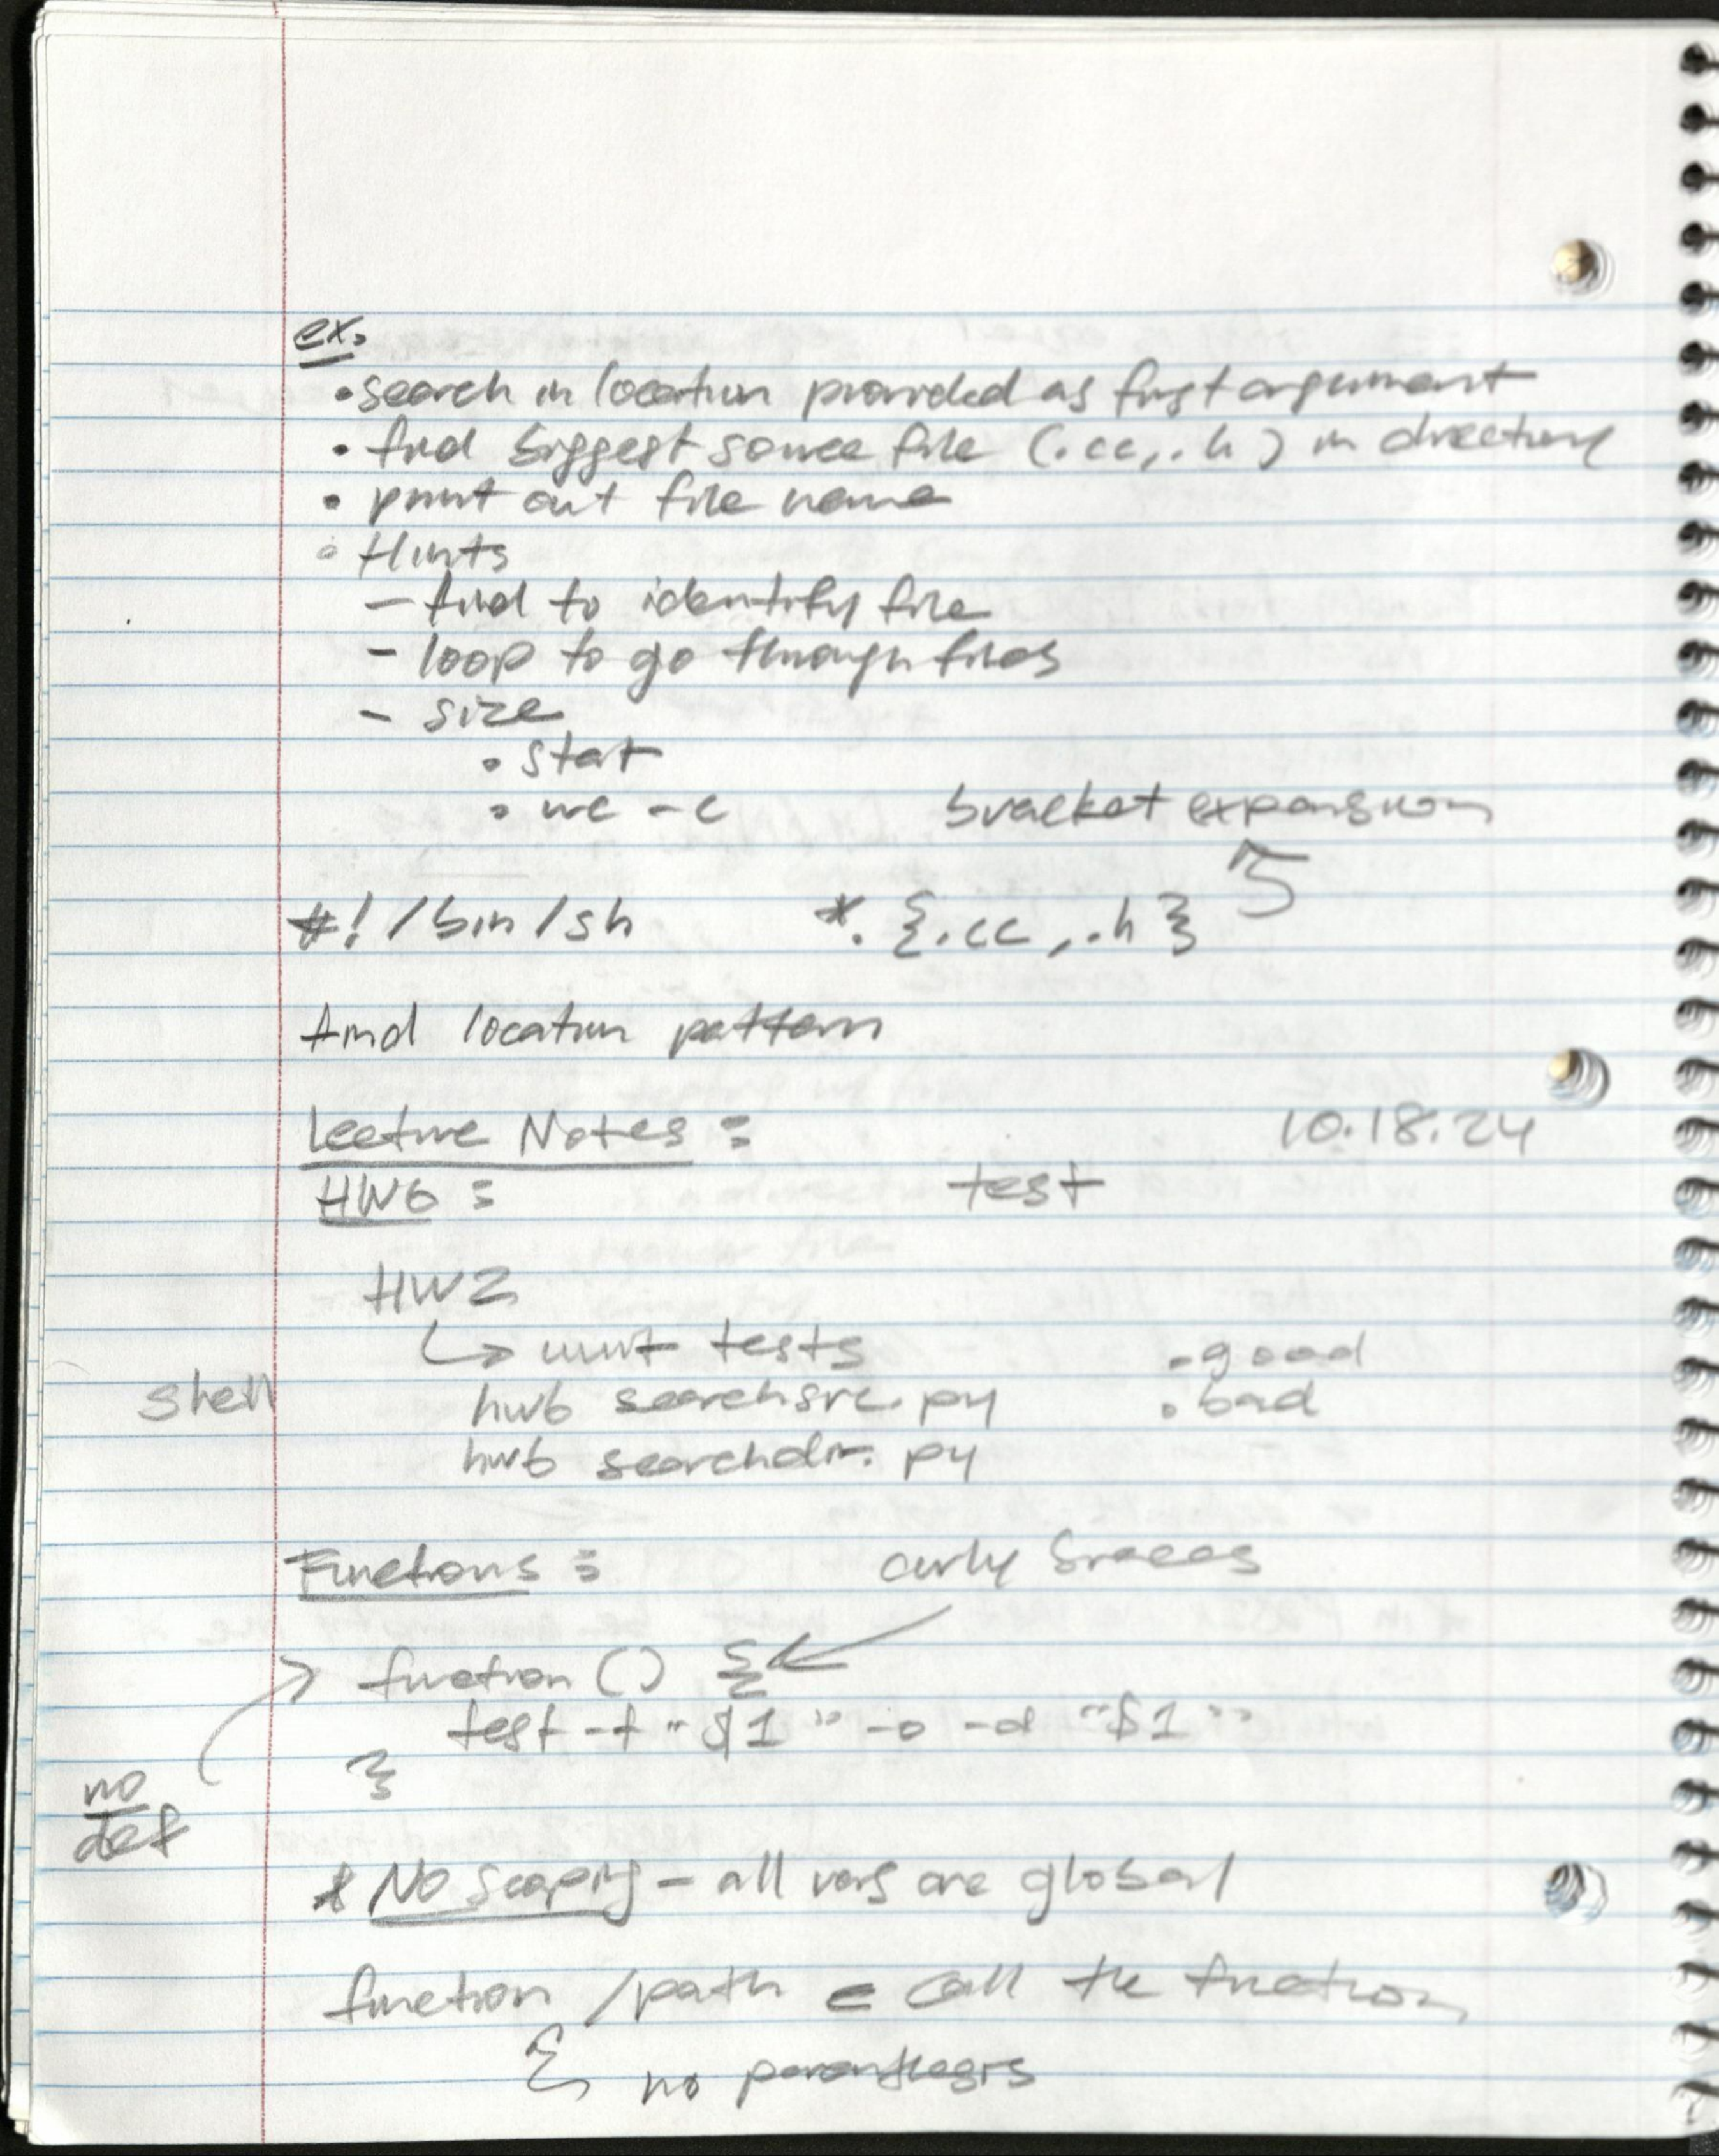 ex.
• search in location provided as first argument
• find biggest source file (.cc, .h) in directory
• print out file name
• Hints
- find to identify file
- loop to go through files
- size
• stat
• wc -c
bracket expansion
#!/bin/sh *. {.cc, .h}
find location pattern
Lecture Notes: 10.18.24
HW6: test
HW2
↳ unit tests • good
Shell hw6 searchsrc.py • bad
hw6 searchdir.py
Functions: curly braces
function () {
test -f "$1" -o -d "$1"
}
no
def
* No scoping - all vars are global
function /path ← call the function
no parenthesis